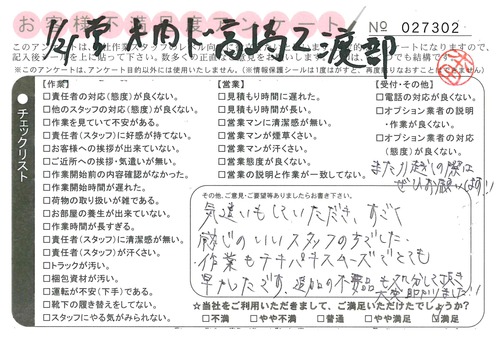 お客様不満足度アンケート
№ 027302
記入後シールを上に貼って下さい。
※このアンケートは、アンケート目的以外には使用いたしません。(情報保護シールは1度はがすと、再度貼りなおすことはできません)
チェックリスト
【作業】
□責任者の対応(態度)が良くない。
□他のスタッフの対応(態度)が良くない。
□作業を見ていて不安がある。
□責任者(スタッフ)に好感が持てない。
□お客様への挨拶が出来ていない。
□ご近所への挨拶・気遣いが無い。
□作業開始前の内容確認がなかった。
□作業開始時間が遅れた。
□荷物の取り扱いが雑である。
□お部屋の養生が出来ていない。
□作業時間が長すぎる。
□責任者(スタッフ)に清潔感が無い。
□責任者(スタッフ)が汗くさい。
□トラックが汚い。
□梱包資材が汚い。
□運転が不安(下手)である。
□靴下の履き替えをしてない。
□スタッフにやる気がみられない。
【営業】
□見積もり時間に遅れた。
□見積もり時間が長い。
□営業マンに清潔感が無い。
□営業マンが煙草くさい。
□営業マンが汗くさい。
□営業態度が良くない。
□営業の説明と作業が一致してない。
【受付・その他】
□電話の対応が良くない。
□オプション業者の説明
・作業が良くない。
□オプション業者の対応
(態度)が良くない。
また引越しの際は
ぜひお願いします!!
その他、ご意見・ご要望等ありましたらお書き下さい。
気遣いもしていただき、すごく
感じのいいスタッフの方でした。
作業もテキパキスムーズでとても
早かったです。追加の不要品も処分して頂き
大変助かりました!!
☆当社をご利用いただきまして、ご満足いただけたでしょうか?
□不満 □やや不満 □普通 □やや満足 ☑満足